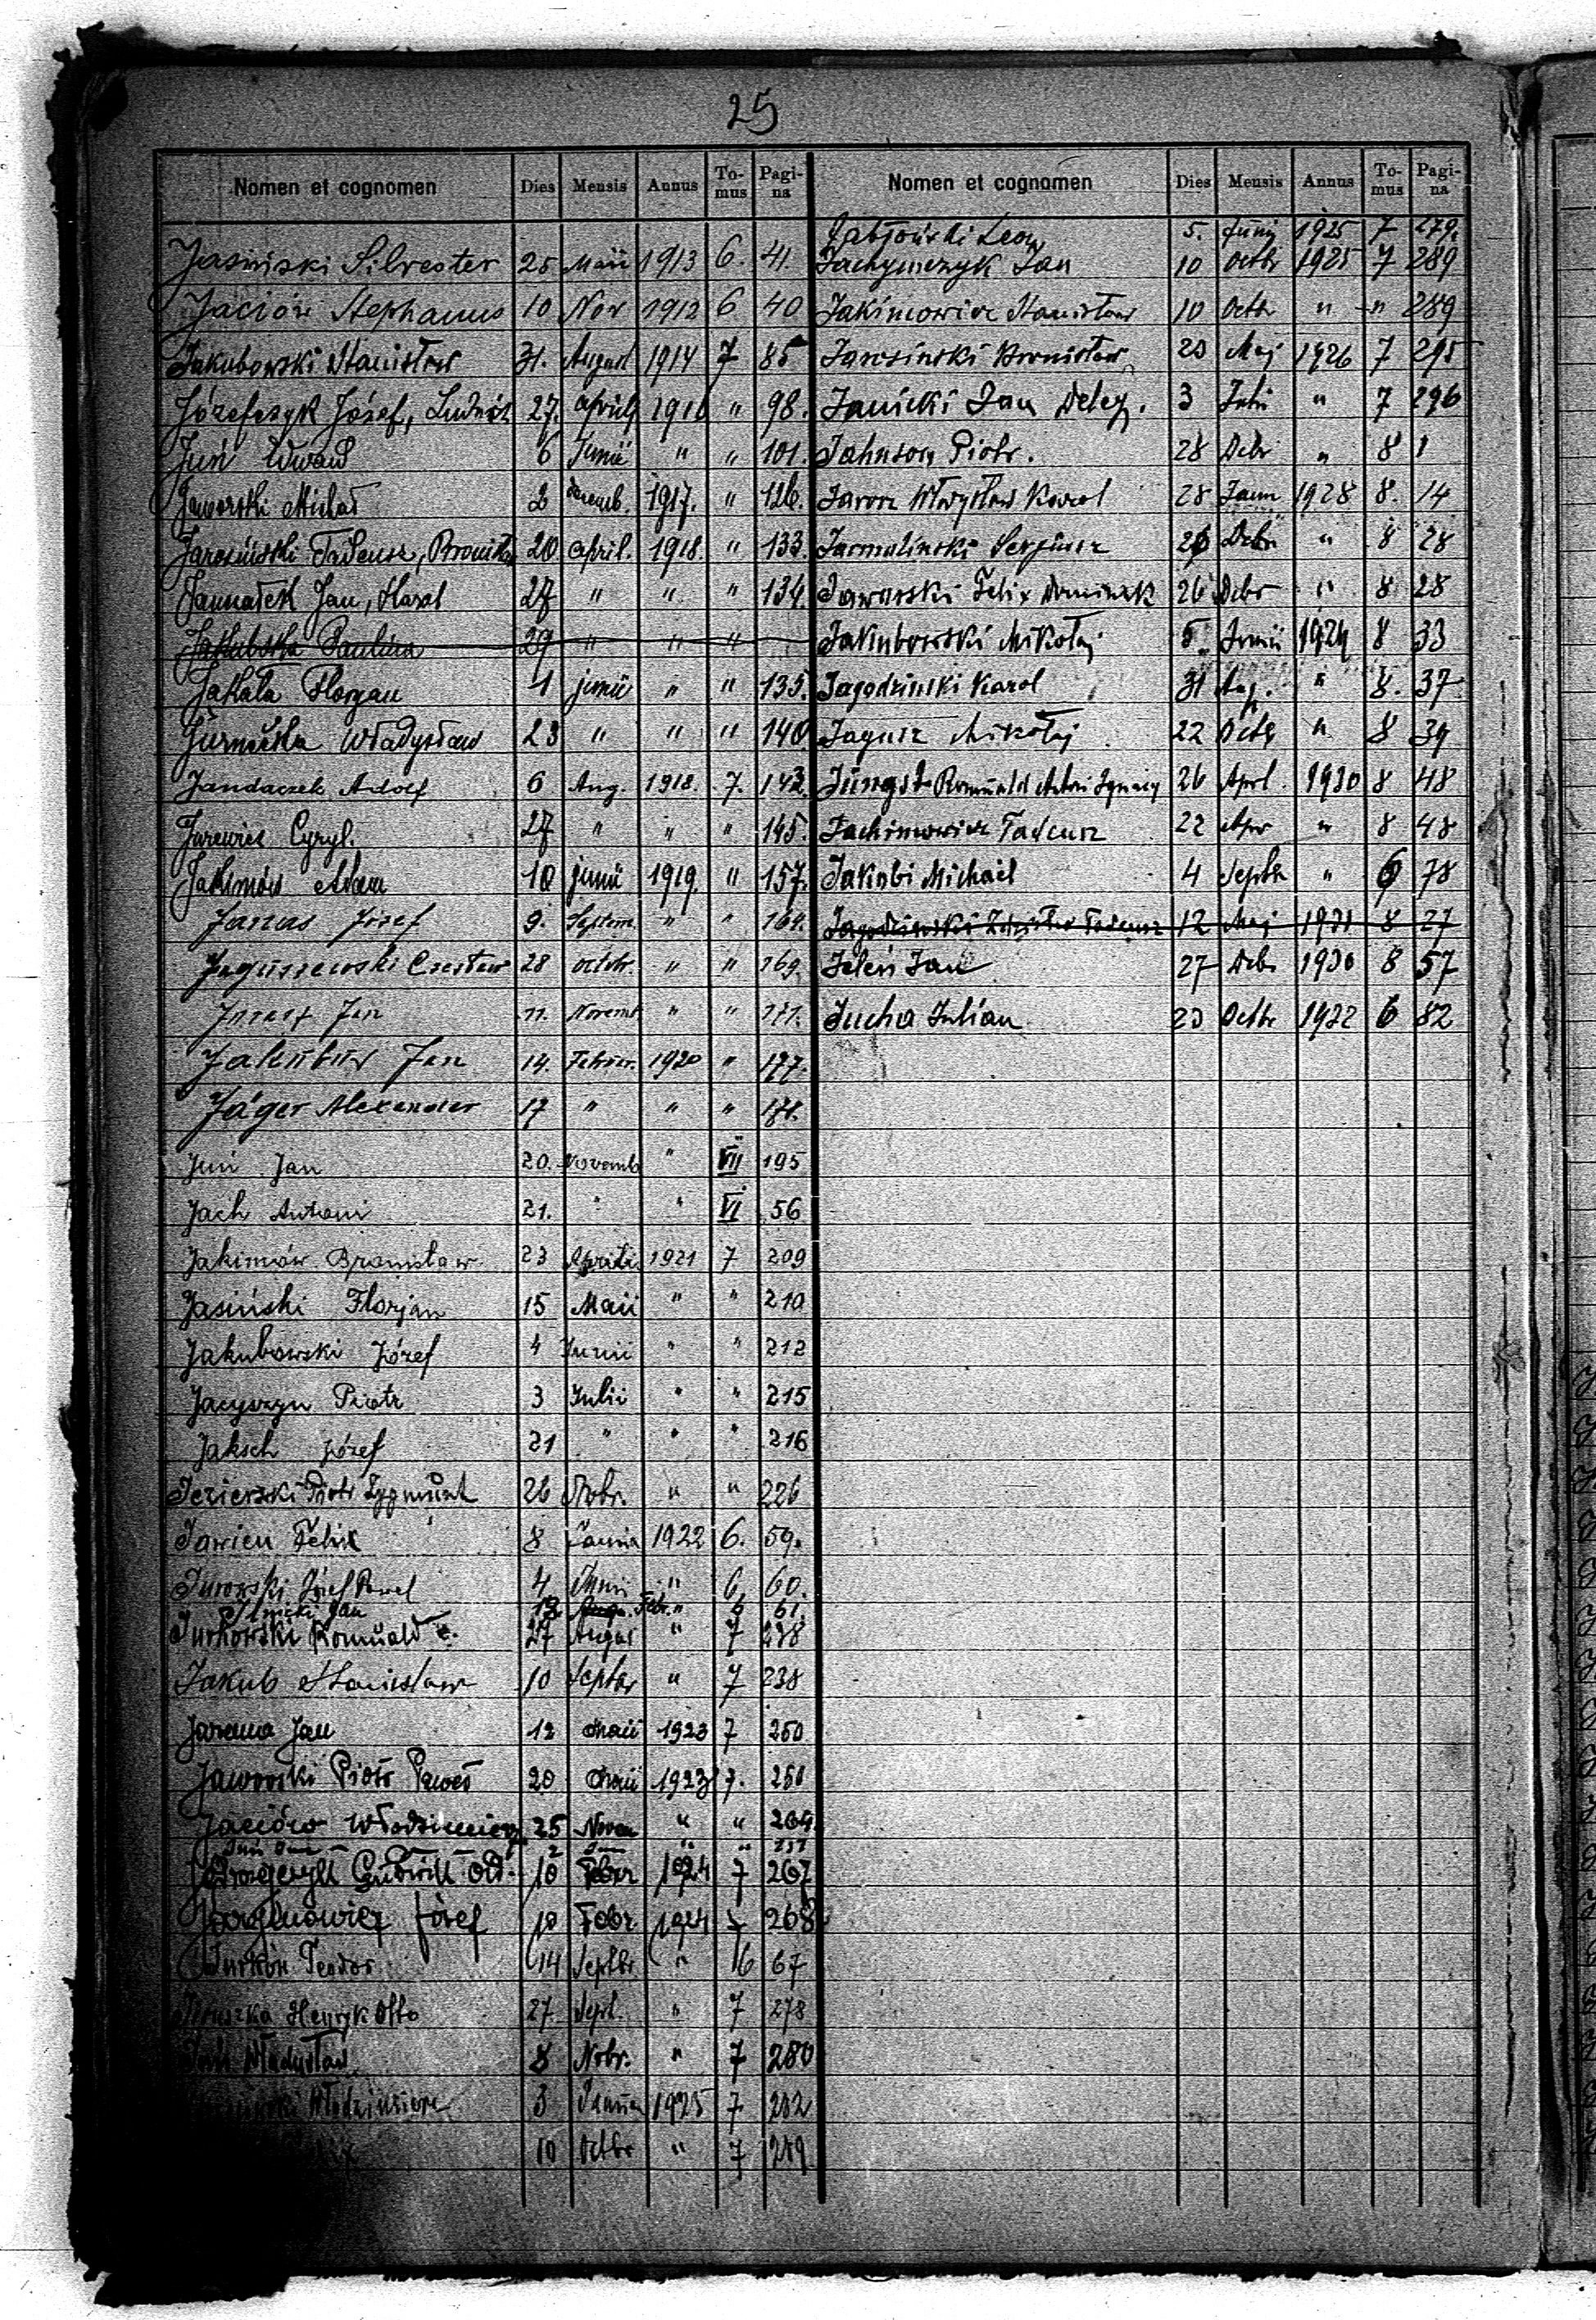 25
Nomen et cognomen Dies Mensis Annus To-mus Pagi-na
Jasiński Silvester 25 Maii 1913 6. 41.
Jaciów Stephanus 10 Nov 1912 6 40
Jakubowski Stanisław 31. August 1914 7 85
Józefczyk Józef, Ludwik 27. aprilis 1916 " 98.
Juś Edward 6 Junii " " 101.
Jaworski Michał 2 decemb. 1917. " 126.
Jarosiński Tadeusz, Bronisław 20 april. 1918. " 133.
Jannatek Jan, Karol 27 " " " 134.
Jakubska Paulina 29 " " "
Jakała Florjan 1 junii " " 135.
Jurnečka Władysław 23 " " " 140
Jandaczek Adolf 6 Aug. 1918. 7. 142.
Jurewicz Cyryl. 27 " " " 145.
Jakimów Adam 10 junii 1919. " 157.
Janas Józef 9. Septem. " " 164.
Jaguszewski Czesław 28 octobr. " " 169.
Jan 11. Novemb " " 171.
Jakubów Jan 14. Februar. 1920 " 177.
Jäger Alexander 17 " " " 178.
Juś Jan 20. Novemb " VII 195
Jach Antoni 21. " " VI 56
Jakimów Bronisław 23 Aprili 1921 7 209
Jasiński Florjan 15 Maii " " 210
Jakubowski Józef 4 Junii " " 212
Jacyszyn Piotr 3 Julii " " 215
Jaksch Józef 21 " " " 216
Jezierski Piotr Zygmunt 26 Nobr. " " 226
Jawien Felix 8 Janua 1922 6. 59.
Jurowski Józef Paweł 4 Junii " 6 60.
Jan 12 Febr. " 6 61.
Jurkowski Romuald 27 August " 7 238
Jakub Stanisław 10 Septbr " 7 238
Jarema Jan 12 Maii 1923 7 250
Jaworski Piotr Paweł 20 Maii 1923 7. 250
Jaciów Włodzimierz 25 Novem " " 264.
2 " "
Ludwik 10 Febr 1924 7 267
Józef 10 Febr 1924 7 268
Jurków Teodor 14 Septbr " 6 67
Henryk Otto 27 Sept. " 7 278
Władysław 8 Nobr. " 7 280
Włodzimierz 3 Janua 1925 7 282
10 Octbr " 7 289
Nomen et cognomen Dies Mensis Annus To-mus Pagi-na
Jabłoński Leon 5. Junij 1925 7 279.
Jachymczyk Jan 10 Octbr 1925 7 289
Jakimowicz Stanisław 10 Octbr " " 289
Jarosinski Bronisław 20 Maj 1926 7 295
Janicki Jan Deleg. 3 Julii " 7 296
Jahnson Piotr. 28 Debr " 8 1
Jawor Władysław Karol 28 Janu 1928 8. 14
Jarmolinski Sergiusz 26 Debr " 8 28
Jaworski Felix Dominik 26 Debr " 8 28
Jakubowski Mikołaj 5 Junii 1929 8 33
Jagodzinski Karol 31 Aug. " 8. 37
Jagusz Mikołaj 22 Octb " 8 39
Jüngst Romuald Antoni Ignacy 26 Aprl. 1930 8 48
Jachimowicz Tadeusz 22 Apr " 8 48
Jakobi Michael 4 Septbr " 6 78
Jagodzinski Zdzisław Tadeusz 12 Maj 1931 8 27
Jeleń Jan 27 Debr 1930 8 57
Jucha Julian 23 Octbr 1932 6 82